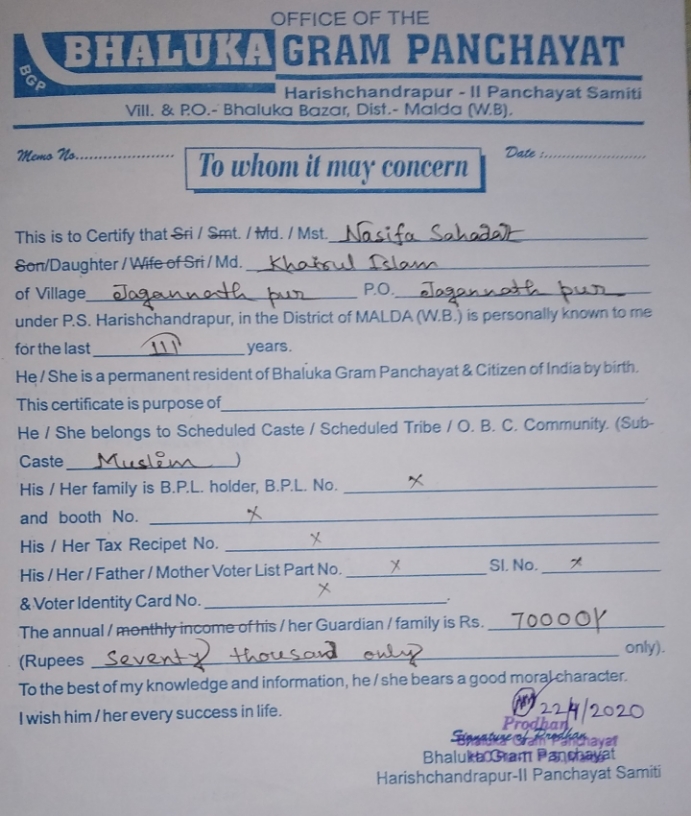 OFFICE OF THE
BHALUKA GRAM PANCHAYAT
BGP
Harishchandrapur - II Panchayat Samiti
Vill. & P.O.- Bhaluka Bazar, Dist.- Malda (W.B).
Memo No.......................
To whom it may concern
Date :........................
This is to Certify that Sri / Smt. / Md. / Mst. Nasifa Sahadat
Son/Daughter / Wife of Sri / Md. Khairul Islam
of Village Jagannath pur P.O. Jagannath pur
under P.S. Harishchandrapur, in the District of MALDA (W.B.) is personally known to me
for the last III years.
He / She is a permanent resident of Bhaluka Gram Panchayat & Citizen of India by birth.
This certificate is purpose of
He / She belongs to Scheduled Caste / Scheduled Tribe / O. B. C. Community. (Sub-
Caste Muslim )
His / Her family is B.P.L. holder, B.P.L. No. x
and booth No. x
His / Her Tax Recipet No. x
His / Her / Father / Mother Voter List Part No. x Sl. No. x
& Voter Identity Card No. x
The annual / monthly income of his / her Guardian / family is Rs. 70000/
(Rupees Seventy thousand only only).
To the best of my knowledge and information, he / she bears a good moral character.
I wish him / her every success in life.
22/4/2020
Prodhan
Signature of Prodhan
Bhaluka Gram Panchayat
Bhaluka Gram Panchayat
Harishchandrapur-II Panchayat Samiti